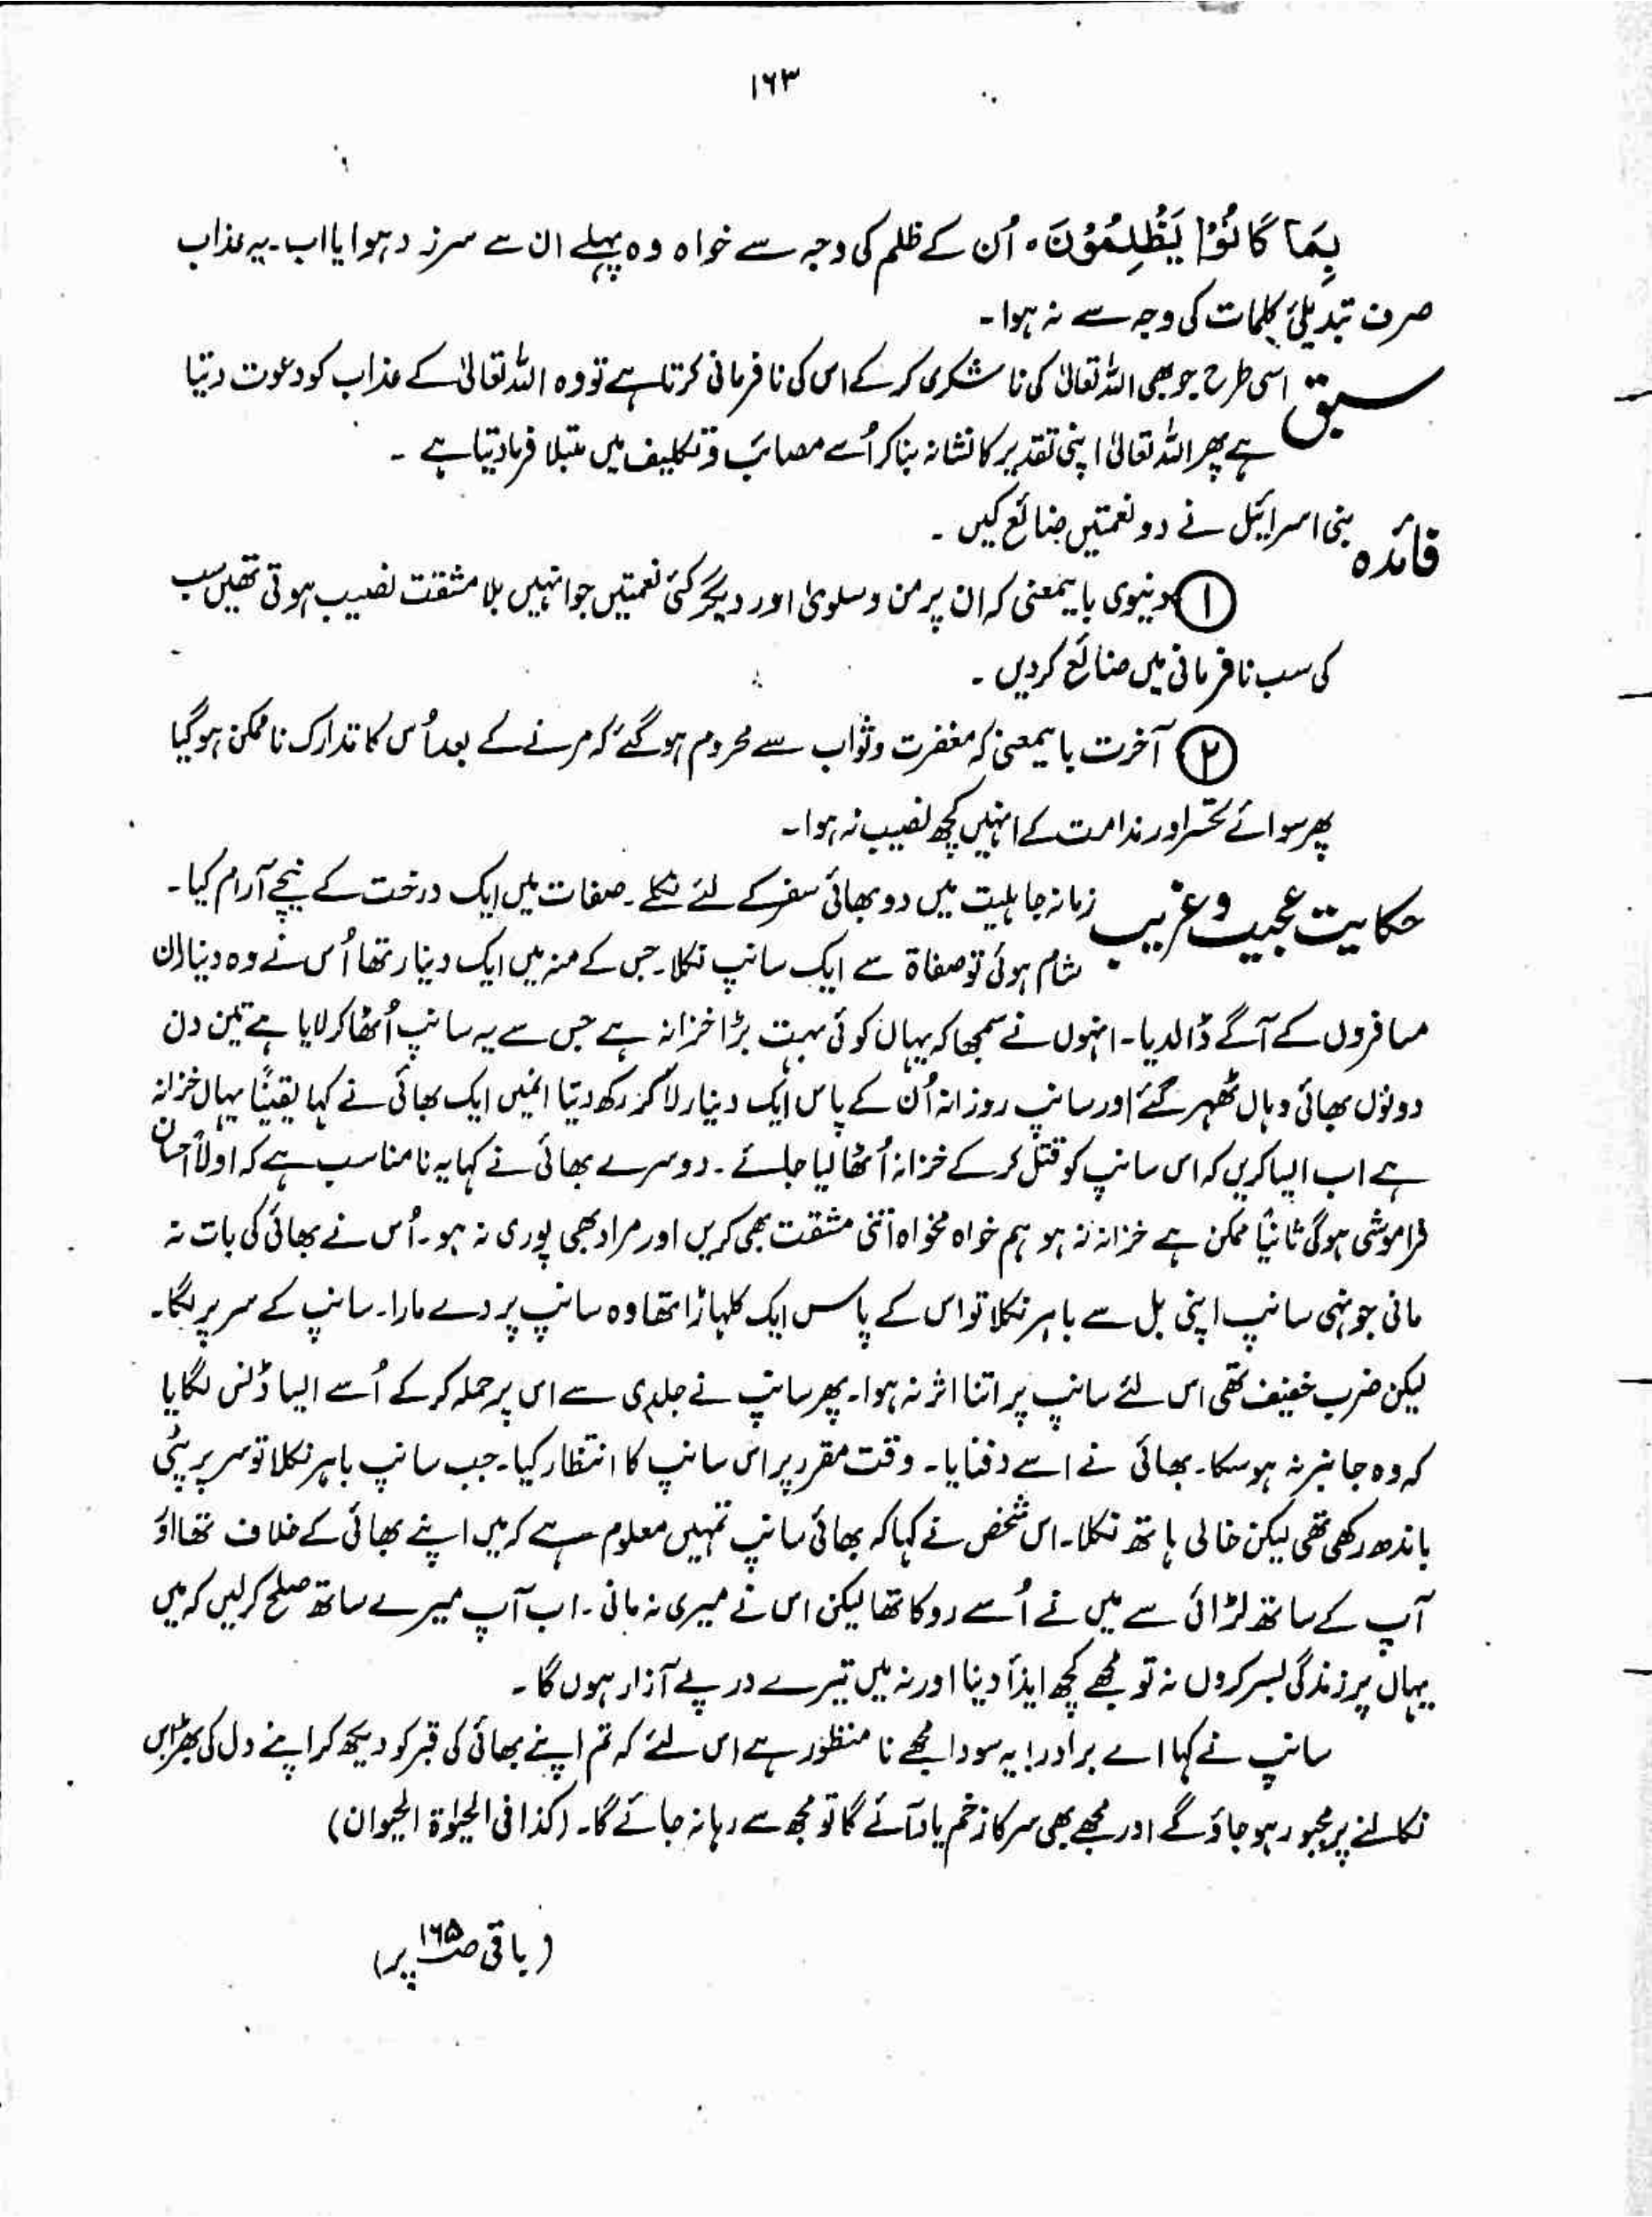 ۱۶۳
بِمَا كَانُوْا يَظْلِمُوْنَ ۰ اُن کے ظلم کی وجہ سے خواہ وہ پہلے ان سے سرزد ہوا یا اب ۔ یہ عذاب
صرف تبدیلیٔ کلمات کی وجہ سے نہ ہوا ۔
سبق اسی طرح جو بھی اللہ تعالیٰ کی ناشکری کر کے اس کی نافرمانی کرتا ہے تو وہ اللہ تعالیٰ کے عذاب کو دعوت دیتا
ہے پھر اللہ تعالیٰ اپنی تقدیر کا نشانہ بنا کر اُسے مصائب و تکلیف میں مبتلا فرما دیتا ہے ۔
فائدہ بنی اسرائیل نے دو نعمتیں ضائع کیں ۔
① دنیوی بایمعنی کہ ان پر من و سلویٰ اور دیگر کئی نعمتیں جو انہیں بلا مشقت نصیب ہوتی تھیں سب
کی سب نافرمانی میں ضائع کردیں ۔
② آخرت بایمعنی کہ مغفرت و ثواب سے محروم ہو گئے کہ مرنے کے بعد اُس کا تدارک ناممکن ہو گیا
پھر سوائے تحسر اور ندامت کے انہیں کچھ نصیب نہ ہوا ۔
حکایت عجیب و غریب زمانہ جاہلیت میں دو بھائی سفر کے لئے نکلے ۔ صفات میں ایک درخت کے نیچے آرام کیا ۔
شام ہوئی تو صفاۃ سے ایک سانپ نکلا ۔ جس کے منہ میں ایک دینار تھا اُس نے وہ دینار ان
مسافروں کے آگے ڈالدیا ۔ انہوں نے سمجھا کہ یہاں کوئی بہت بڑا خزانہ ہے جس سے یہ سانپ اُٹھا کر لایا ہے تین دن
دونوں بھائی وہاں ٹھہر گئے اور سانپ روزانہ اُن کے پاس ایک دینار لا کر رکھ دیتا انمیں ایک بھائی نے کہا یقیناً یہاں خزانہ
ہے اب ایسا کریں کہ اس سانپ کو قتل کر کے خزانہ اُٹھا لیا جائے ۔ دوسرے بھائی نے کہا یہ نامناسب ہے کہ اولاً احسان
فراموشی ہوگی ثانیاً ممکن ہے خزانہ نہ ہو ہم خواہ مخواہ اتنی مشقت بھی کریں اور مراد بھی پوری نہ ہو ۔ اُس نے بھائی کی بات نہ
مانی جونہی سانپ اپنی بل سے باہر نکلا تو اس کے پاس ایک کلہاڑا تھا وہ سانپ پر دے مارا ۔ سانپ کے سر پر لگا ۔
لیکن ضرب خفیف تھی اس لئے سانپ پر اتنا اثر نہ ہوا ۔ پھر سانپ نے جلدی سے اس پر حملہ کر کے اُسے ایسا ڈنس لگایا
کہ وہ جانبر نہ ہو سکا ۔ بھائی نے اسے دفنایا ۔ وقت مقرر پر اس سانپ کا انتظار کیا ۔ جب سانپ باہر نکلا تو سر پر پٹی
باندھ رکھی تھی لیکن خالی ہاتھ نکلا ۔ اس شخص نے کہا کہ بھائی سانپ تمہیں معلوم ہے کہ میں اپنے بھائی کے خلاف تھا اور
آپ کے ساتھ لڑائی سے میں نے اُسے روکا تھا لیکن اس نے میری نہ مانی ۔ اب آپ میرے ساتھ صلح کر لیں کہ میں
یہاں پر زندگی بسر کروں نہ تو مجھے کچھ ایذا دینا اور نہ میں تیرے درپے آزار ہوں گا ۔
سانپ نے کہا اے برادر! یہ سودا مجھے نا منظور ہے اس لئے کہ تم اپنے بھائی کی قبر کو دیکھ کر اپنے دل کی بھڑاس
نکالنے پر مجبور ہو جاؤ گے اور مجھے بھی سر کا زخم یاد آئے گا تو مجھ سے رہا نہ جائے گا ۔ (کذا فی الحیٰوۃ الحیوان)
(باقی صـ ۱۶۵ پر)